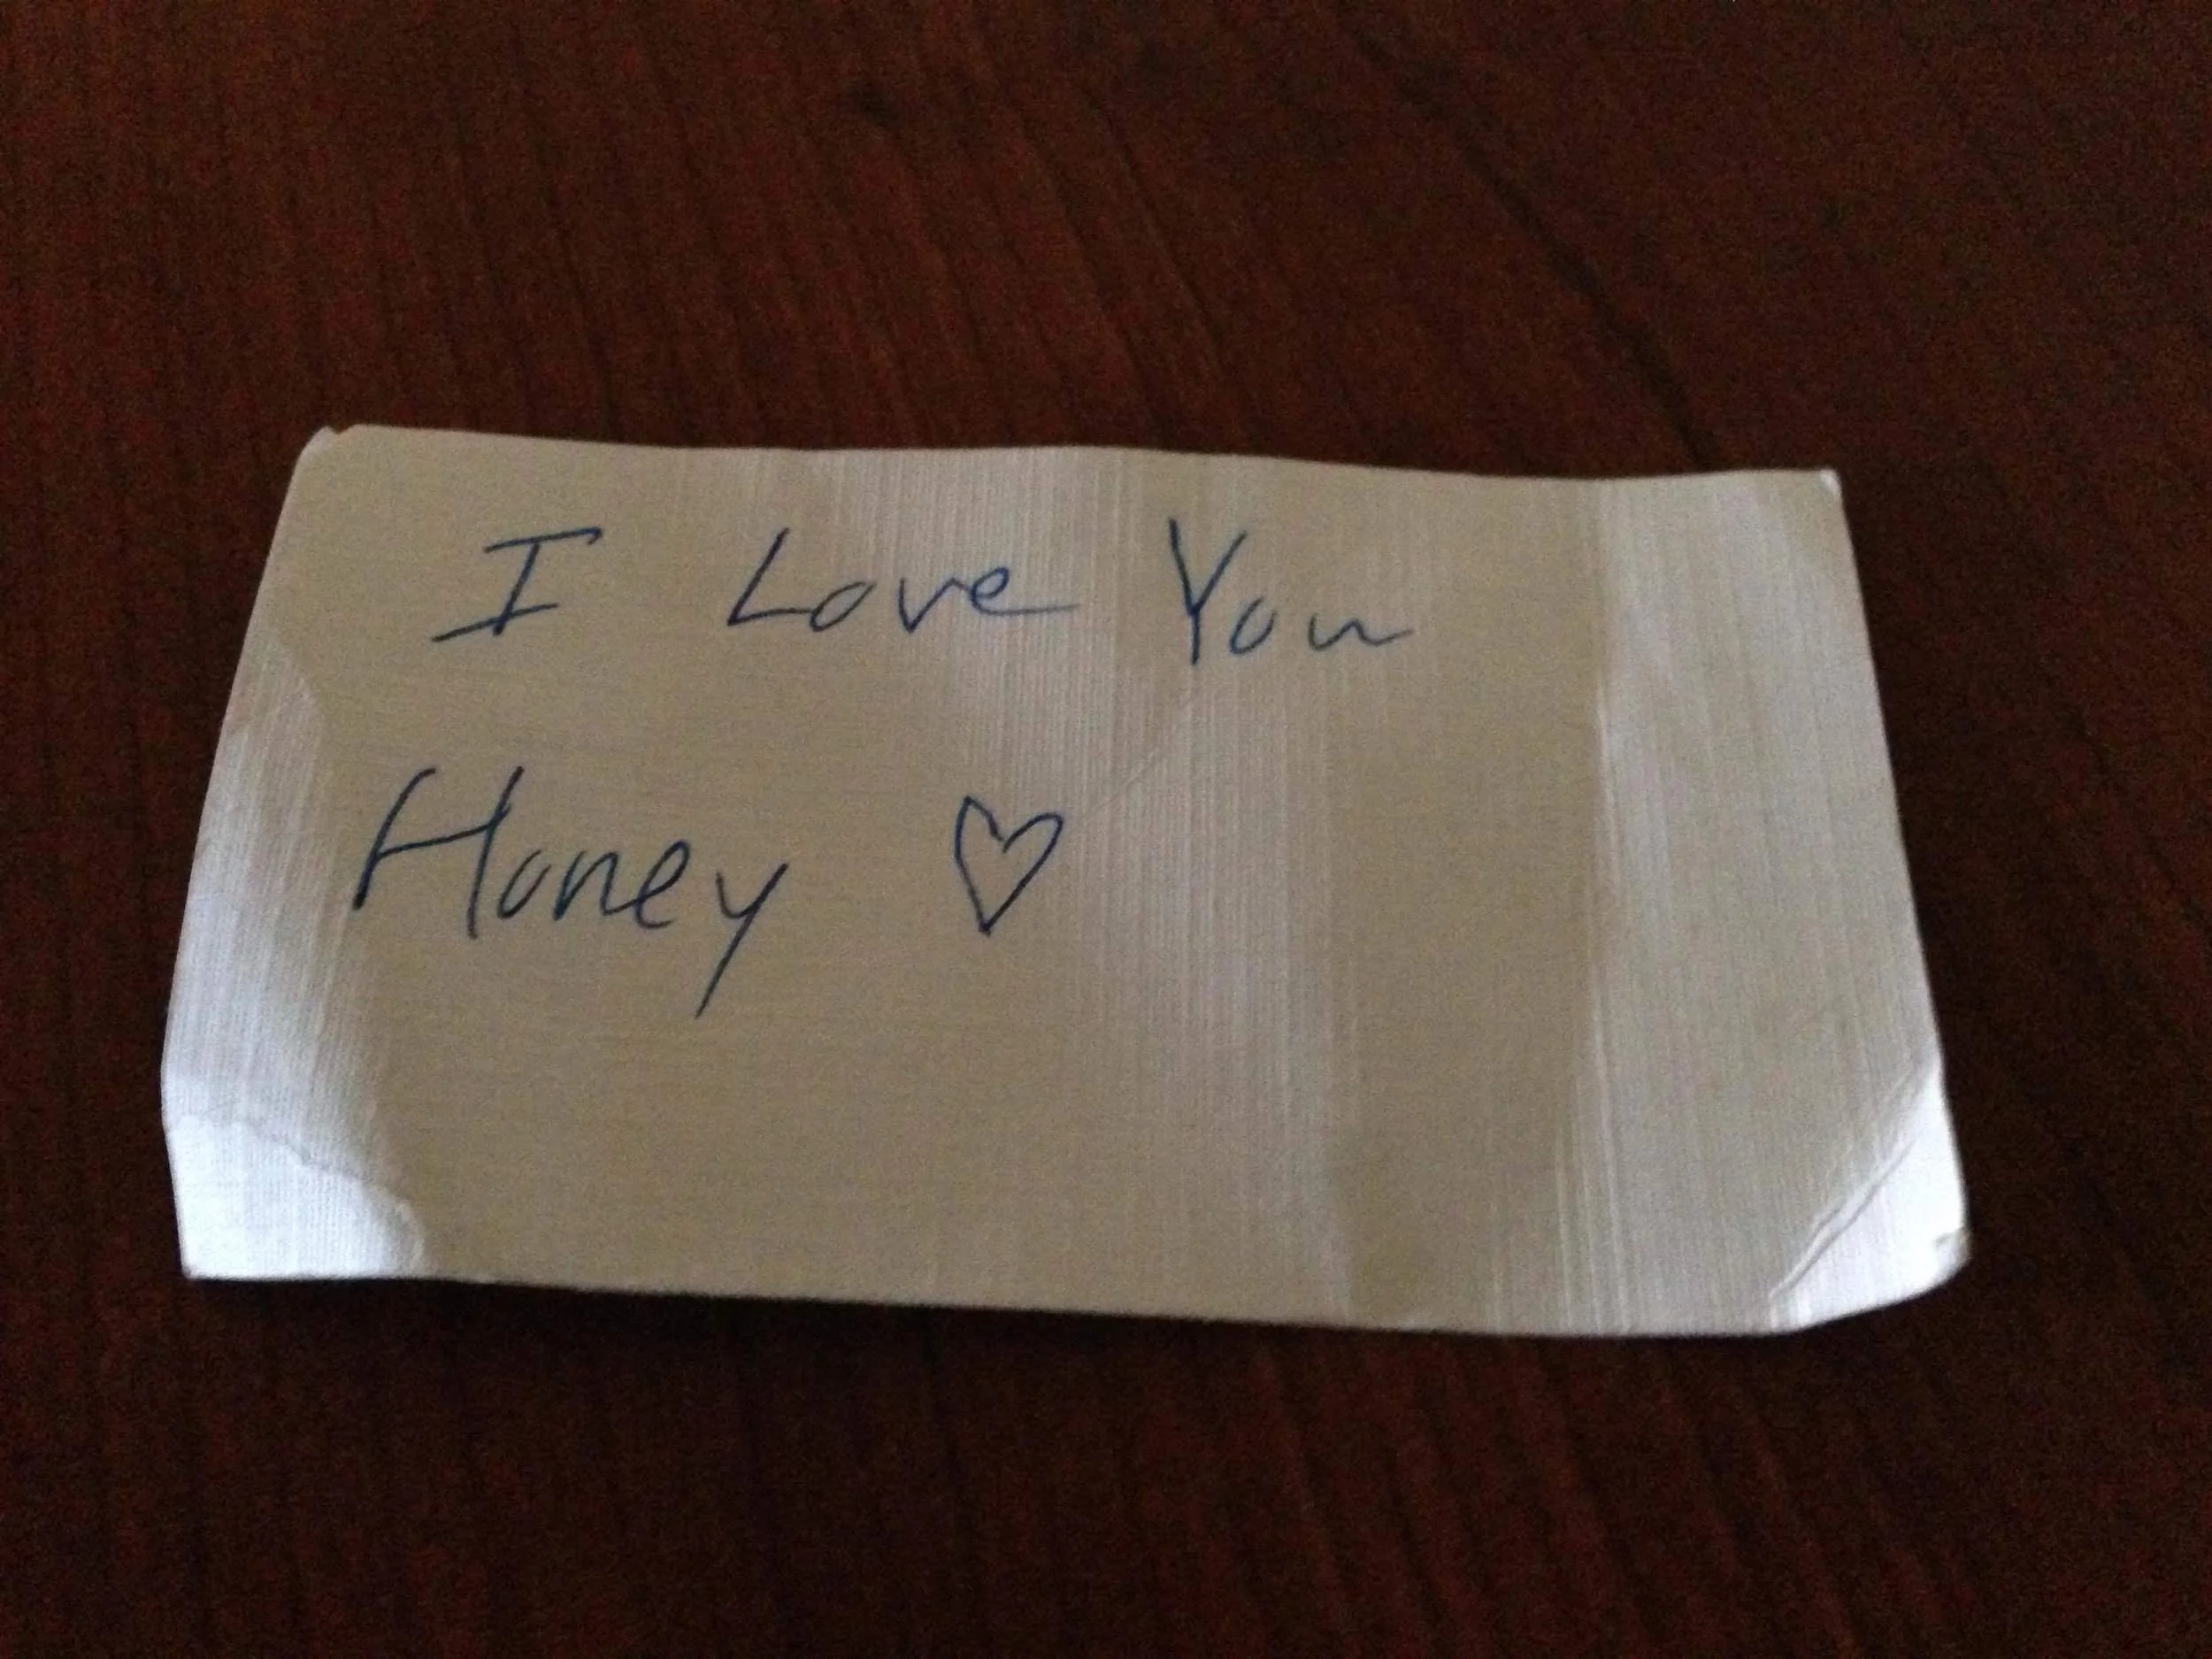 I Love You
Honey ♡